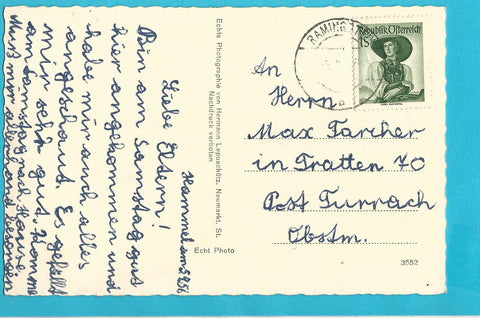 Liebe Eltern!
Bin am Samstag gut
hier angekommen und
habe mir auch alles
angeschaut. Es gefällt
mir sehr gut. Komme
am Samstag nach Hause.
Muß mir allerhand besorgen
Echte Photographie von Hermann Lepuschütz, Neumarkt, St.
Nachdruck verboten
Echt Photo
RAMING
Republik Österreich
1S
An
Herrn
Max Farcher
in Tratten 70
Post Turrach
Obstm.
3552